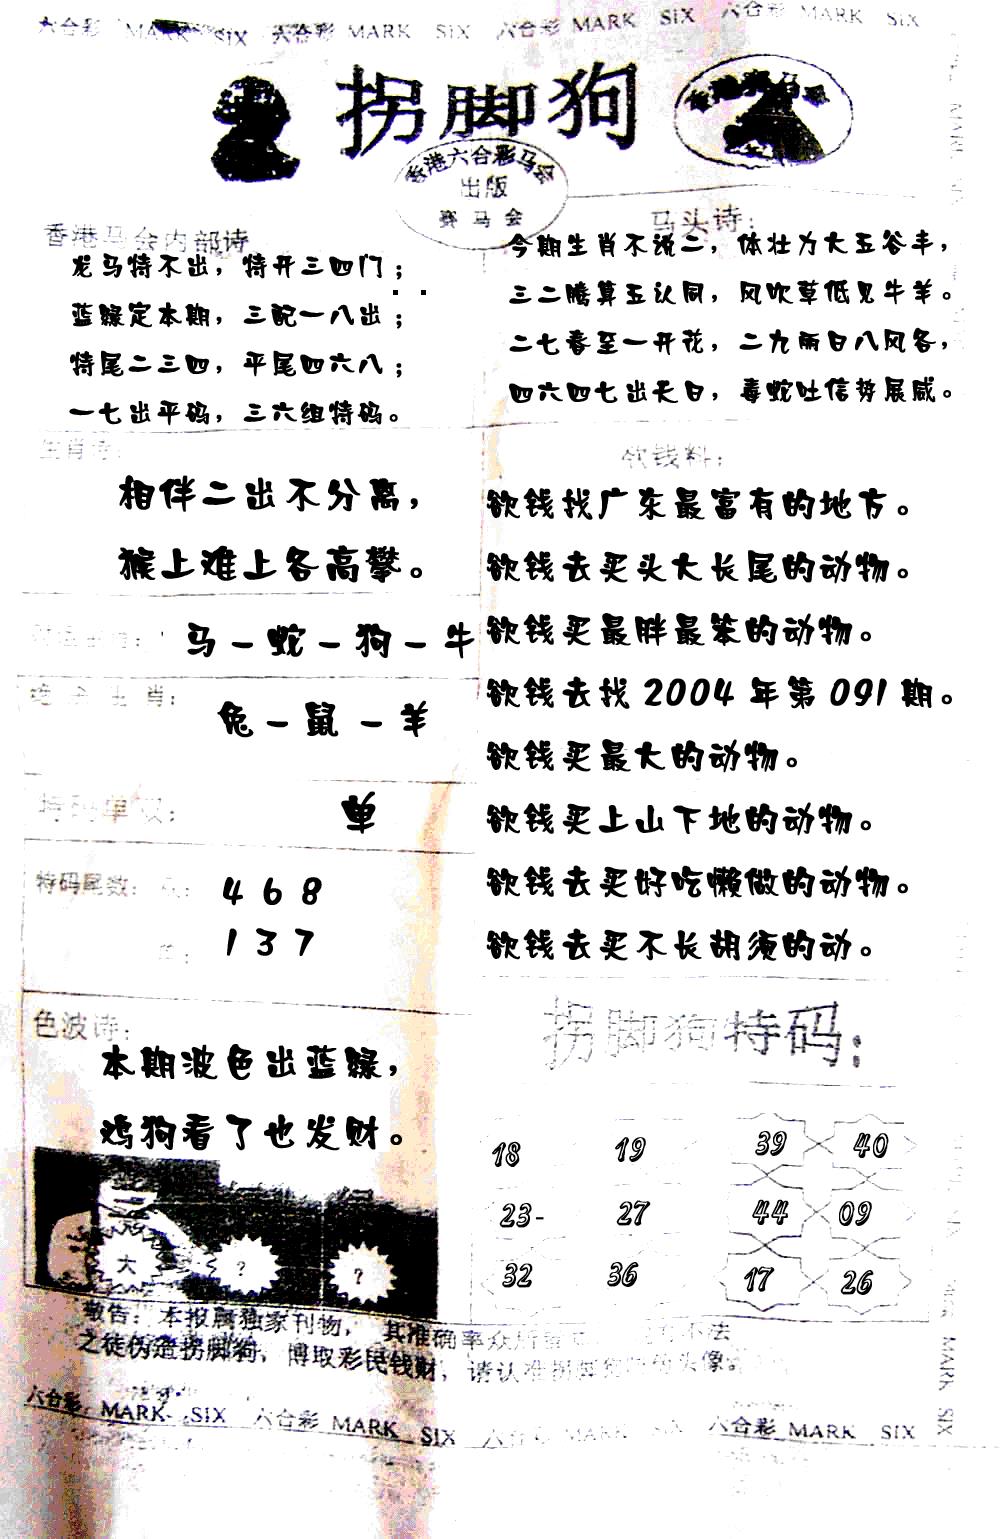 六合彩 MARK SIX 六合彩 MARK SIX 六合彩 MARK SIX 六合彩 MARK SIX
拐脚狗
香港六合彩马会
出版
赛马会
香港马会内部诗
龙马特不出，特开三四门；
蓝緑定本期，三配一八出；
特尾二三四，平尾四六八；
一七出平码，三六组特码。
马头诗：
今期生肖不说二，体壮力大五谷丰，
三二腾算五认同，风吹草低见牛羊。
二七春至一开花，二九雨日八风各，
四六四七出天日，毒蛇吐信势展威。
生肖诗：
相伴二出不分离，
猴上难上各高攀。
马－蛇－狗－牛
绝杀生肖：
兔－鼠－羊
特码单双：
单
特码尾数：
4 6 8
1 3 7
欲钱料：
欲钱找广东最富有的地方。
欲钱去买头大长尾的动物。
欲钱买最胖最笨的动物。
欲钱去找 2004 年第 091 期。
欲钱买最大的动物。
欲钱买上山下地的动物。
欲钱去买好吃懒做的动物。
欲钱去买不长胡须的动。
色波诗：
本期波色出蓝緑，
鸡狗看了也发财。
大 ? ?
拐脚狗特码：
18 19 39 40
23- 27 44 09
32 36 17 26
敬告：本报属独家刊物，其准确率众所
不法
之徒伪造拐脚狗，博取彩民钱财，请认准拐脚狗
头像
六合彩 MARK SIX 六合彩 MARK SIX 六合彩 MARK SIX 六合彩 MARK SIX
MARK SIX